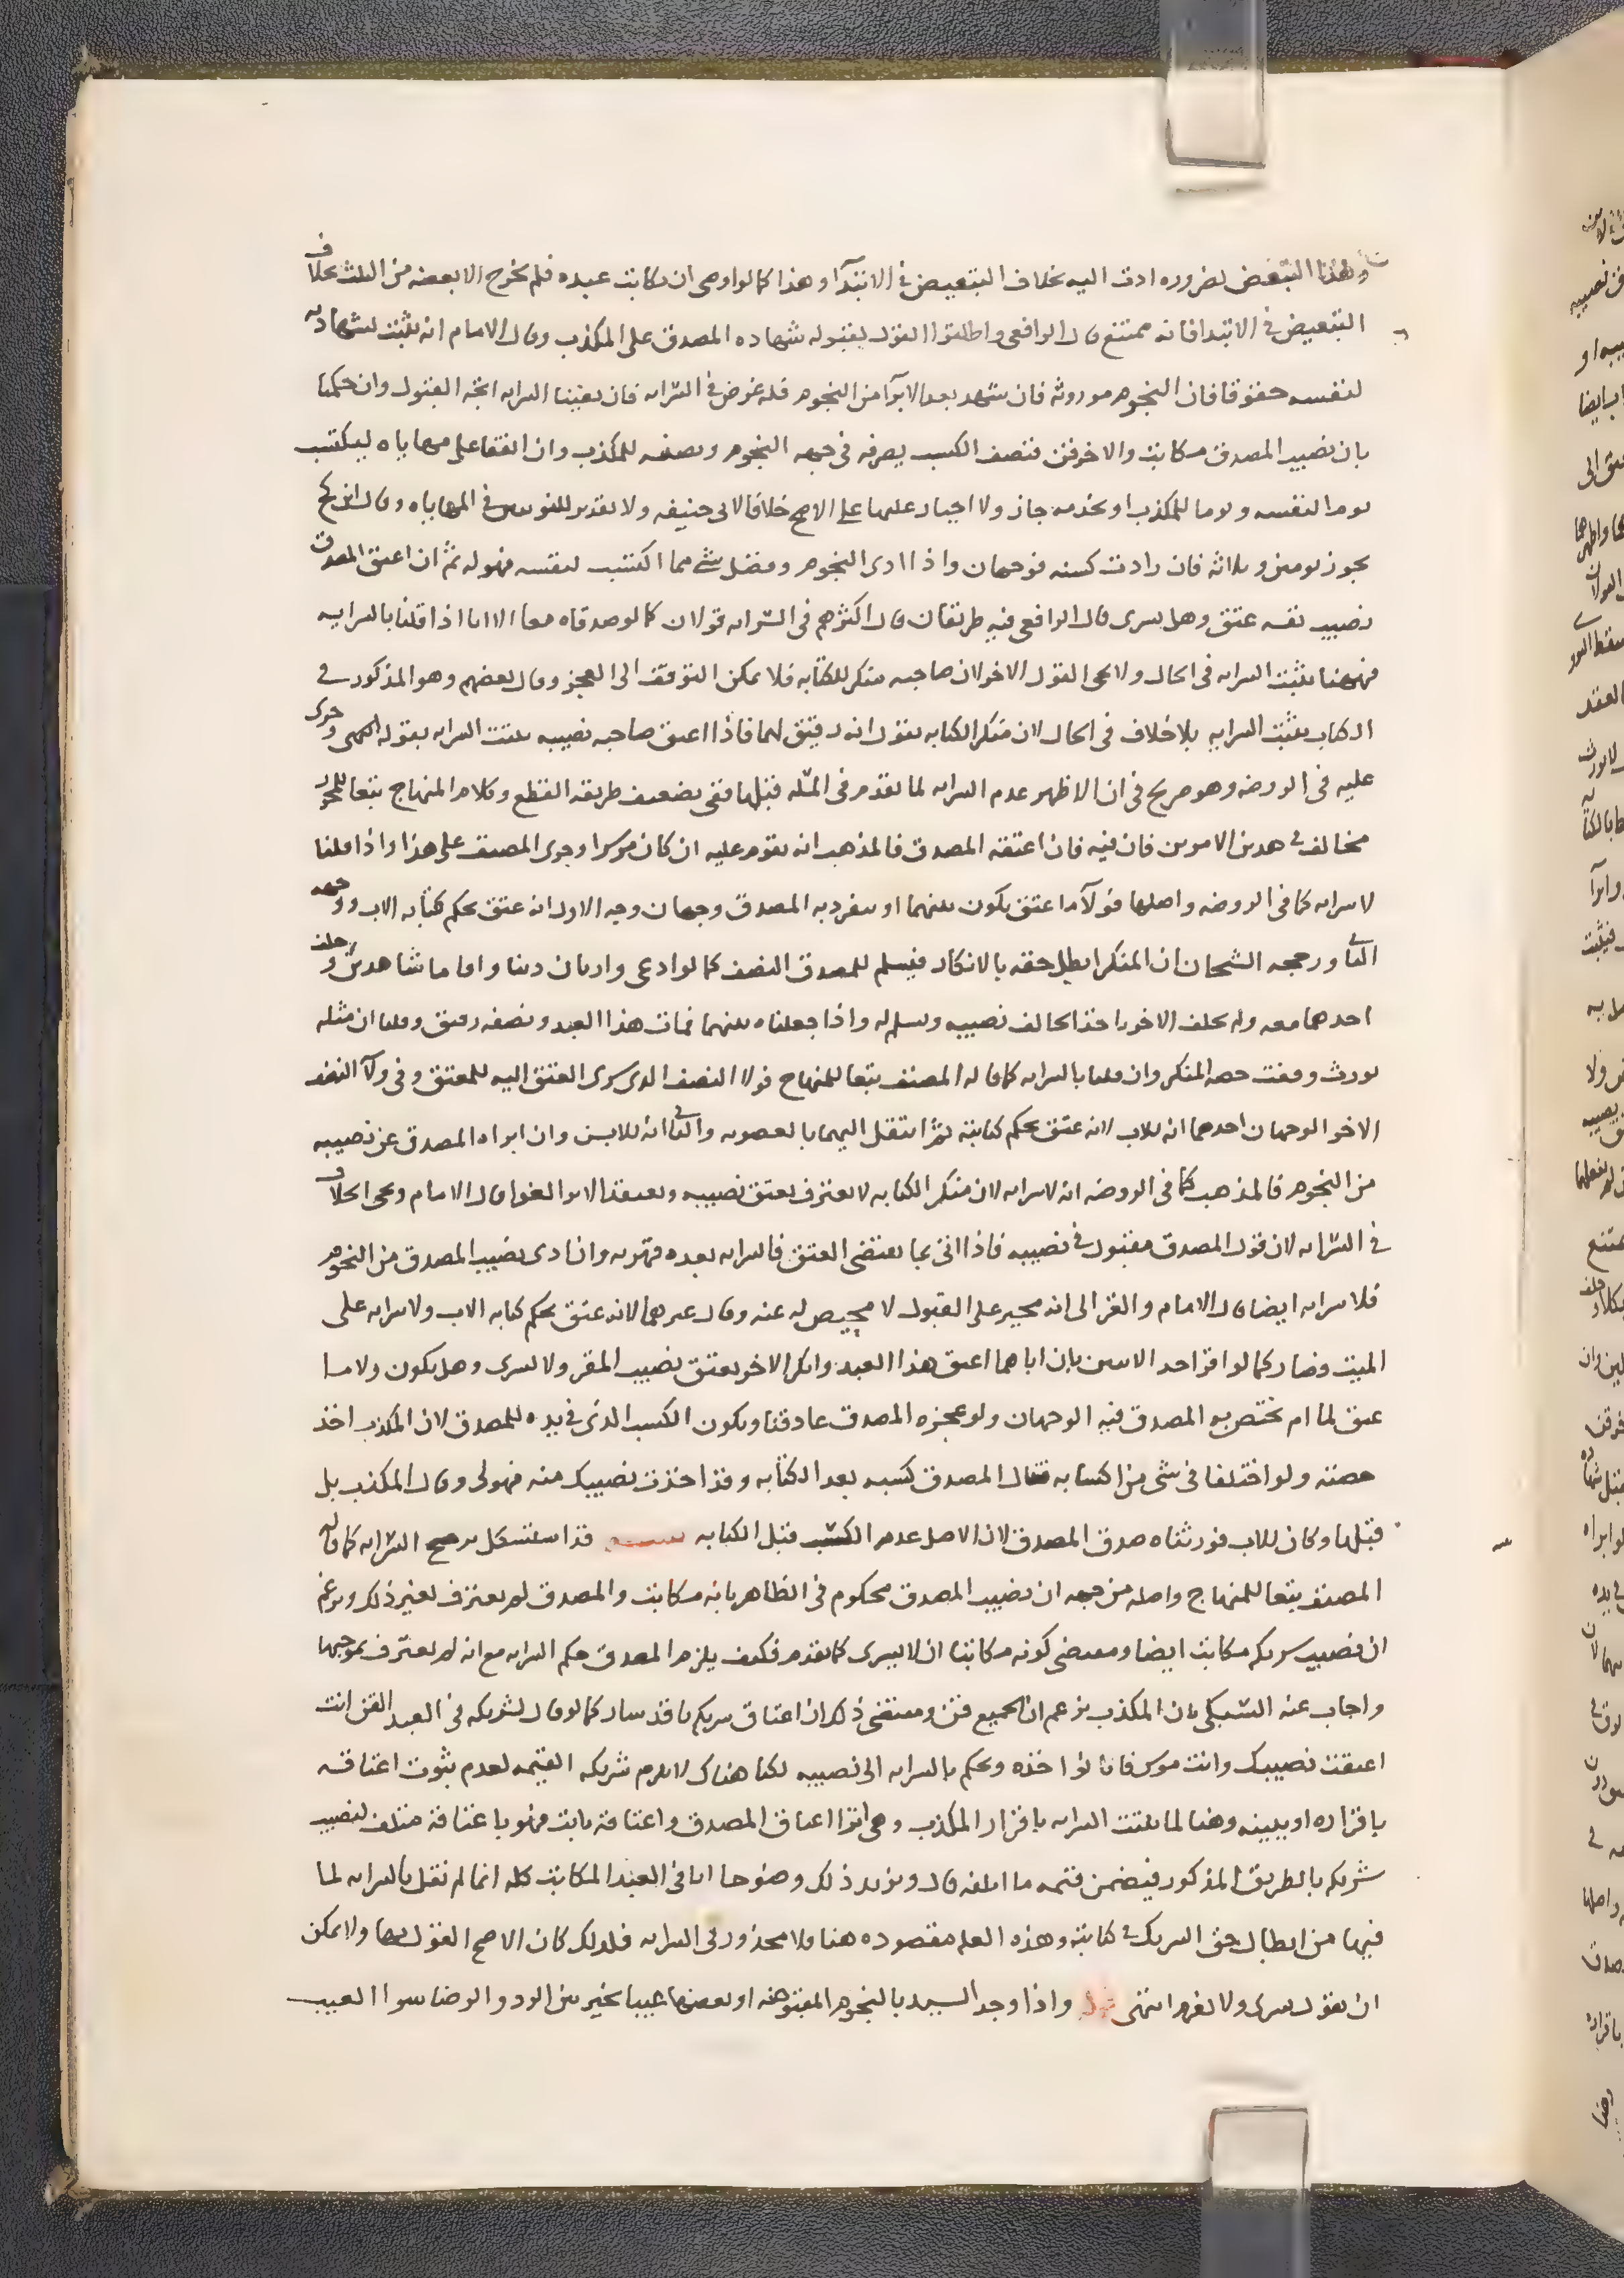 وهذا التبعض لضروره ادت اليه بخلاف التبعيض في الابتدآ وهذا كما لو اوصى ان يكاتب عبده فلم يخرج الا بعضه من الثلث بخلاف
التبعيض في الابتدا فانه ممتنع قال الرافعي واطلقوا القول بقبوله شهاده المصدق على المكذب وقال الامام انه يثبت لشهادته
لنفسه حقوقا فان النجوم موروثه فان شهد بعد الابرآ من النجوم فله غرض في السرايه فان نفينا السرايه اتجه القبول وان حكمنا
بان نصيب المصدق مكاتب والاخر قن فنصف الكسب يصرفه في جهه النجوم ونصفه للمكذب وان اتفقا على مهاياه ليكتسب
يوما لنفسه ويوما للمكذب او يخدمه جاز ولا اجبار عليها على الاصح خلافا لابي حنيفه ولا تقدير للنوبتين في المهاياه وقال ابن كج
يجوز يومين وثلاثه فان زادت كسنه فوجهان واذا ادى النجوم وفضل شي مما اكتسب لنفسه فهو له ثم ان اعتق المصدق
نصيب نفسه عتق وهل يسرى قال الرافعي فيه طريقان قال اكثرهم في السرايه قولان كما لو صدقاه معا الا انا اذا قلنا بالسرايه
فههنا يثبت السرايه في الحال ولا يجي القول الاخر لان صاحبه منكر للكتابه فلا يمكن التوقف الى العجز وقال بعضهم وهو المذكور في
الكتاب يثبت السرايه بلا خلاف في الحال لان منكر الكتابه يقول انه رقيق لهما فاذا اعتق صاحبه نصيبه يثبت السرايه بقوله انتهى وجرى
عليه في الروضه وهو صريح في ان الاظهر عدم السرايه لما تقدم في المسله قبلها ففي تضعيف طريقه القطع وكلام المنهاج تبعا للمحرر
مخالف في هذين الامرين فان فيه فان اعتقه المصدق فالمذهب انه يقوم عليه ان كان موسرا وجرى المصنف على هذا واذا قلنا
لا سرايه كما في الروضه واصلها فولآ ما اعتق يكون بينهما او ينفرد به المصدق وجهان وجه الاول انه عتق بحكم كتابه الاب ووجه
الثاني ورجحه الشيخان ان المنكر ابطل حقه بالانكار فيسلم للمصدق النصف كما لو ادعى وارثان دينا واقاما شاهدين وحلف
احدهما معه ولم يحلف الاخر ياخذ الحالف نصيبه ويسلم له واذا جعلناه بينهما فمات هذا العبد ونصفه رقيق وقلنا ان مثله
يورث وقفت حصه المنكر وان قلنا بالسرايه كما قاله المصنف تبعا للمنهاج فولا النصف الذى سرى العتق اليه للمعتق وفي ولآ النصف
الاخر الوجهان احدهما انه للاب لانه عتق بحكم كتابته ثم انتقل اليهما بالعصوبه والثاني انه للابن وان ابراه المصدق عن نصيبه
من النجوم فالمذهب كما في الروضه انه لا سرايه لان منكر الكتابه لا يعترف بعتق نصيبه ويعتقد الابرا لغوا قال الامام ويجي الخلاف
في السرايه لان قول المصدق مقبول في نصيبه فاذا اتى بما يقتضي العتق فالسرايه بعده قهريه وان ادى نصيب المصدق من النجوم
فلا سرايه ايضا قال الامام والغزالى انه مجبر على القبول لا محيص له عنه وقال غيرهما لانه عتق بحكم كتابه الاب ولا سرايه على
الميت وصار كما لو اقر احد الابنين بان اباهما اعتق هذا العبد وانكر الاخر يعتق نصيب المقر ولا يسرى وهل يكون ولا ما
عتق لها ام يختص به المصدق فيه الوجهان ولو عجزه المصدق عاد قنا ويكون الكسب الذي في يده للمصدق لان المكذب اخذ
حصته ولو اختلفا في شي من اكسابه فقال المصدق كسبه بعد الكتابه وقد اخذت نصيبك منه فهو لى وقال المكذب بل
قبلها وكان للاب فورثناه صدق المصدق لان الاصل عدم الكسب قبل الكتابه قد استشكل ترجيح السرايه كما قاله
المصنف تبعا للمنهاج واصله من جهه ان نصيب المصدق محكوم في الظاهر بانه مكاتب والمصدق لم يعترف بغير ذلك ويزعم
ان نصيب شريكه مكاتب ايضا ومقتضى كونه مكاتبا ان لا يسرى كما تقدم فكيف يلزم المصدق حكم السرايه مع انه لم يعترف بموجبها
واجاب عنه السبكي بان المكذب يزعم ان الجميع قن ومقتضى ذلك ان اعتاق شريكه نافذ سار كما لو قال لشريكه في العبد القن انت
اعتقت نصيبك وانت موسر فانا نواخذه ويحكم بالسرايه الى نصيبه لكنا هناك لا نلزم شريكه القيمه لعدم ثبوت اعتاقه
باقراره او ببينه وهنا لما يثبت السرايه باقرار المكذب وهي اثر اعتاق المصدق واعتاقه ثابت فهو باعتاقه متلف لنصيب
شريكه بالطريق المذكور فيضمن قيمه ما اتلفه قال ويزيد ذلك وضوحا انا في العبد المكاتب كله انما لم نقل بالسرايه لما
فيها من ابطال حق الشريك في كتابته وهذه العله مفقوده هنا فلا محذور في السرايه فلذلك كان الاصح القول بها ولا يمكن
ان يقول يسرى ولا يغرم انتهى واذا وجد السيد بالنجوم المقبوضه او بعضها عيبا تخير بين الرد والرضا سوا العيب